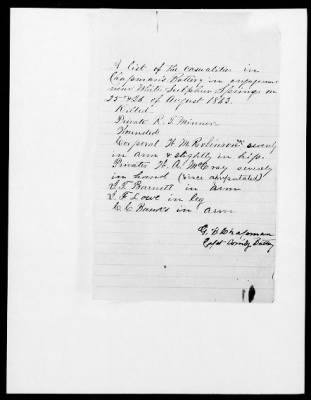 A list of the casualties in
Chapman's Battery in engagement
near White Sulphur Springs on
25th & 26 of August 1863.
Killed
Private R. F.
Wounded
Corporal H. M. Robinson severely
in arm & slightly in hip.
Private H. A. McCray severely
in hand (since amputated)
Barnett in arm
Lowe in leg
C. C. in arm
G. B. Chapman
Capt Comdg Battery